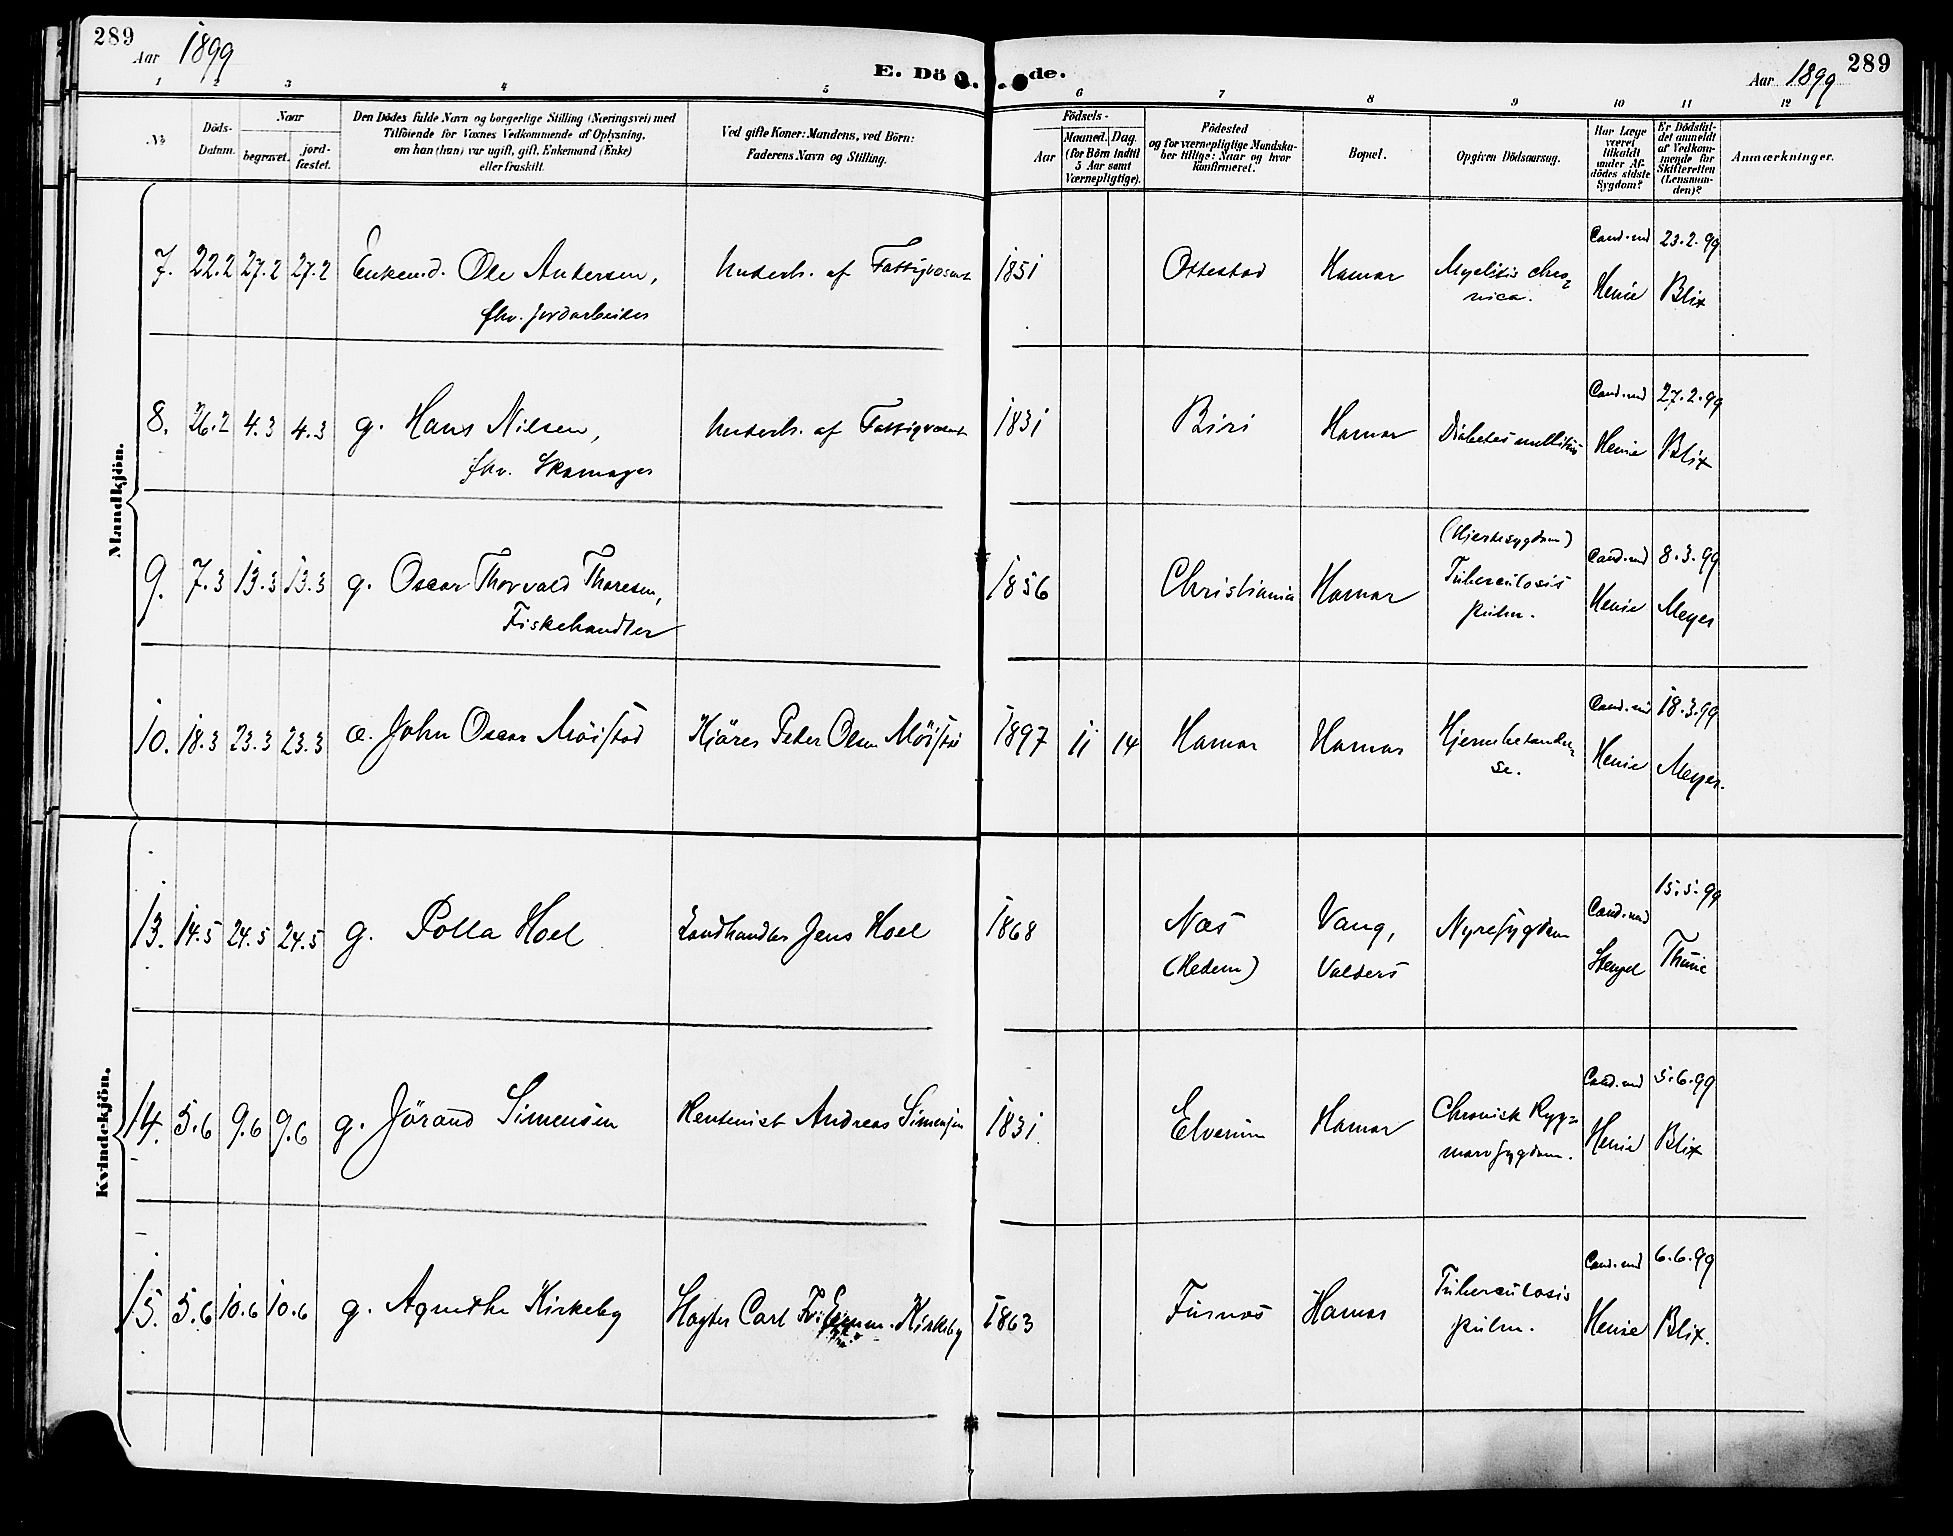 289
Aar 1899
E. Dö de.
Aar 1899
289
1 2 3 4 5 6 7 8 9 10 11 12
No.
Döds-
Datum.
Naar
begravet.
jord-
fæstet.
Den Dödes fulde Navn og borgerlige Stilling (Næringsvei) med
Tilföiende for Voxnes Vedkommende af Oplysning,
om han (hun) var ugift, gift, Enkemand (Enke)
eller fraskilt.
Ved gifte Koner: Mandens, ved Börn:
Faderens Navn og Stilling.
Födsels-
Aar
Maaned. Dag.
(for Börn indtil
5 Aar samt
Værnepligtige).
Födested
og for værnepligtige Mandska-
ber tillige: Naar og hvor
konfirmeret.
Bopæl.
Opgiven Dödsaarsag.
Har Læge
været
tilkaldt
under Af-
dödes sidste
Sygdom?
Er Dödsfal-
det anmeldt
af Vedkom-
mende for
Skifteretten
(Lensman-
den)?
Anmærkninger.
Mandkjön.
7. 22.2 27.2 27.2 Enkemd. Ole Andersen, Underh. af Fattigvæsnt 1851 Ottestad Hamar Myelitis chro- Cand. med 23.2.99
fhv. Jordarbeider nica. Henie Blix
8. 26.2 4.3 4.3 g. Hans Nilsen, Underh. af Fattigvæsnt 1831 Biri Hamar Diabetes mellitus Cand. med 27.2.99
fhv. Skomager Henie Blix
(Hjertesygdom)
9. 7.3 13.3 13.3 g. Oscar Thorvald Thoresen, 1856 Christiania Hamar Tuberculosis Cand. md 8.3.99
Fiskehandler pulm. Henie Meyer
10. 18.3 23.3 23.3 æ. John Oscar Möistad Kjörer Peter Olsen Möistad 1897 11 14 Hamar Hamar Hjernebetændel- Cand. md 18.3.99
se. Henie Meyer.
Kvindekjön.
13. 14.5 24.5 24.5 g. Polla Hoel Landhandler Jens Hoel 1868 Næs Vang, Nyresygdom Cand. med 15.5.99
(Hedem) Valders Stengel Thune
14. 5.6 9.6 9.6 g. Jörand Simensen Rentenist Andreas Simensen 1831. Elverum Hamar Chronisk Ryg- Cand. med 5.6.99
marvsygdom. Henie Blix
15. 5.6 10.6 10.6 g. Agnethe Kirkeby Slagter Carl Kirkeby 1863 Furnes Hamar Tuberculosis Cand. med 6.6.99
pulm. Henie Blix.